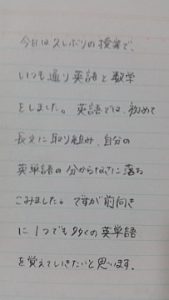 今日は久しぶりの授業で、
いつも通り英語と数学
をしました。英語では、初めて
長文に取り組み、自分の
英単語の分からなさに落ち
こみました。ですが前向き
に1つでも多くの英単語
を覚えていきたいと思います。